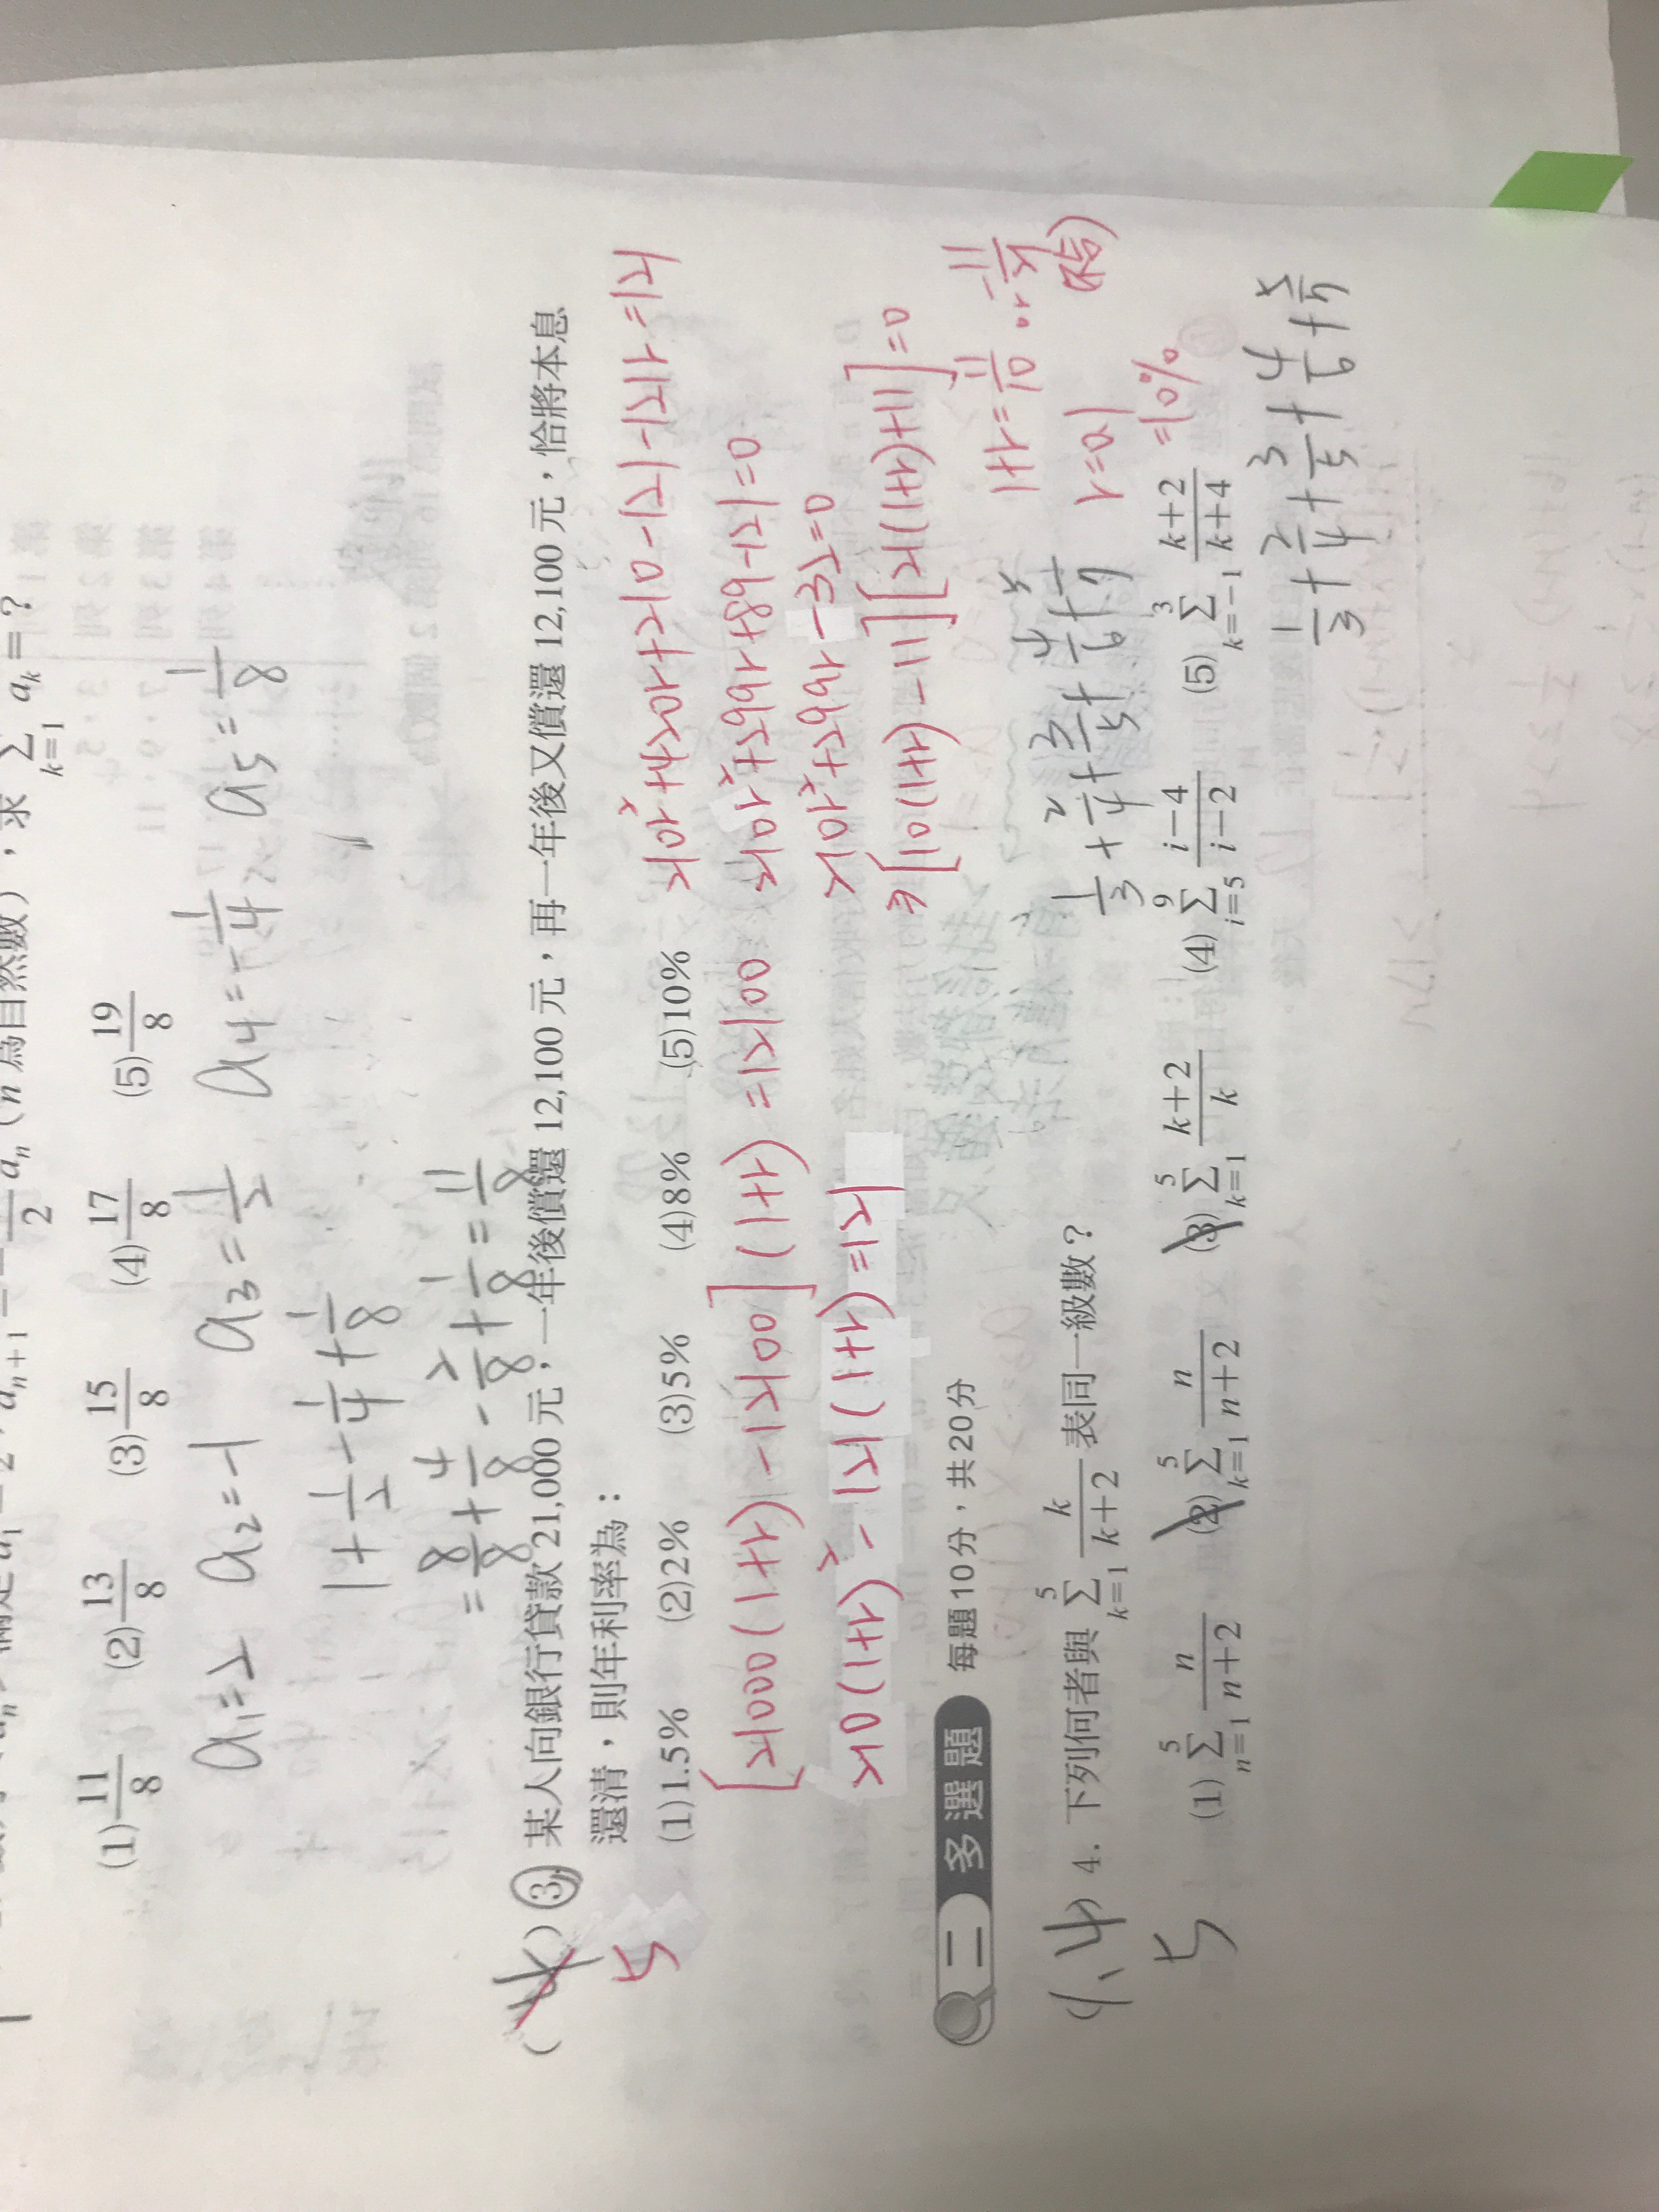 滿足 a₁ = 2，aₙ₊₁ = -1/2 aₙ（n 為自然數），求 Σ_{k=1} aₖ = ?
(1) 11/8 (2) 13/8 (3) 15/8 (4) 17/8 (5) 19/8
a₁=2 a₂=-1 a₃=1/2 a₄=-1/4 a₅=1/8
1+1/2-1/4+1/8
=8/8+4/8-2/8+1/8=11/8
( ) 3. 某人向銀行貸款 21,000 元，一年後償還 12,100 元，再一年後又償還 12,100 元，恰將本息
還清，則年利率為：
5
(1)1.5% (2)2% (3)5% (4)8% (5)10%
[21000(1+r)-12100](1+r)=12100
210(1+r)²-121(1+r)=121
210r²+420r+210-121-121r=121
210r²+299r+89-121=0
210r²+299r-32=0
⇒[10(1+r)-11][21(1+r)+11]=0
1+r=11/10 or -11/21
(不合)
r=0.1
=10%
二 多選題 每題10分，共20分
(1、4) 4. 下列何者與 Σ_{k=1}^{5} k/(k+2) 表同一級數？
5
1/3+2/4+3/5+4/6+5/7
(1) Σ_{n=1}^{5} n/(n+2) (2) Σ_{k=1}^{5} n/(n+2) (3) Σ_{k=1}^{5} (k+2)/k (4) Σ_{i=5}^{9} (i-4)/(i-2) (5) Σ_{k=-1}^{3} (k+2)/(k+4)
1/3+2/4+3/5+4/6+5/7